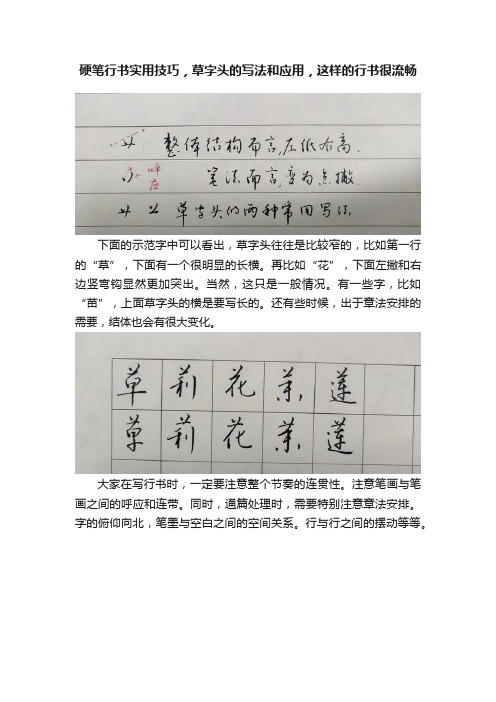 硬笔行书实用技巧，草字头的写法和应用，这样的行书很流畅
整体结构而言,左低右高.
呼应 笔法而言,变为点撇.
草字头的两种常用写法
下面的示范字中可以看出，草字头往往是比较窄的，比如第一行
的“草”，下面有一个很明显的长横。再比如“花”，下面左撇和右
边竖弯钩显然更加突出。当然，这只是一般情况。有一些字，比如
“苗”，上面草字头的横是要写长的。还有些时候，出于章法安排的
需要，结体也会有很大变化。
草 莉 花 茉 莲
草 莉 花 茉 莲
大家在写行书时，一定要注意整个节奏的连贯性。注意笔画与笔
画之间的呼应和连带。同时，通篇处理时，需要特别注意章法安排。
字的俯仰向北，笔墨与空白之间的空间关系。行与行之间的摆动等等。